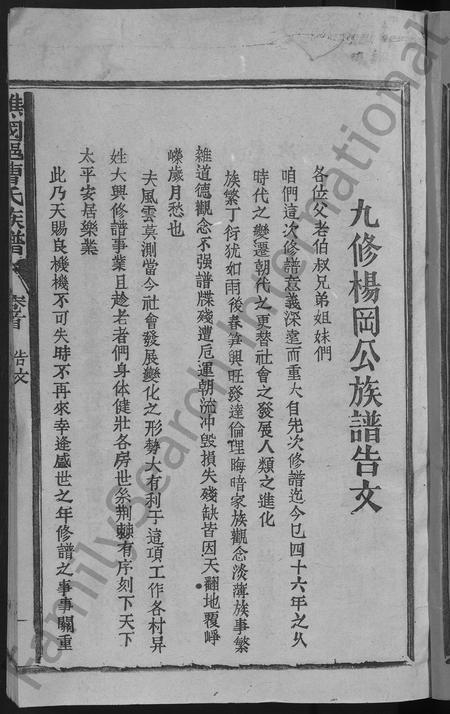 九修楊岡公族譜告文
各位父老伯叔兄弟姐妹們
咱們這次修譜意義深遠而重大自先次修譜迄今已四十六年之久
時代之變遷朝代之更替社會之發展人類之進化
族繁丁衍犹如雨後春笋興旺發達倫理晦暗家族觀念淡薄族事繁
雜道德觀念不强譜牒殘遭厄運朝流冲毁損失殘缺皆因天翻地覆崢
嶸歲月愁也
夫風雲莫測當今社會發展變化之形勢大有利于這項工作各村异
姓大興修譜事業且趁老者們身体健壯各房世系荆棘有序刻下天下
太平安居樂業
此乃天賜良機機不可失時不再來幸逢盛世之年修譜之事事關重
譙國郡曹氏族譜
卷首
告文
一
FamilySearch International